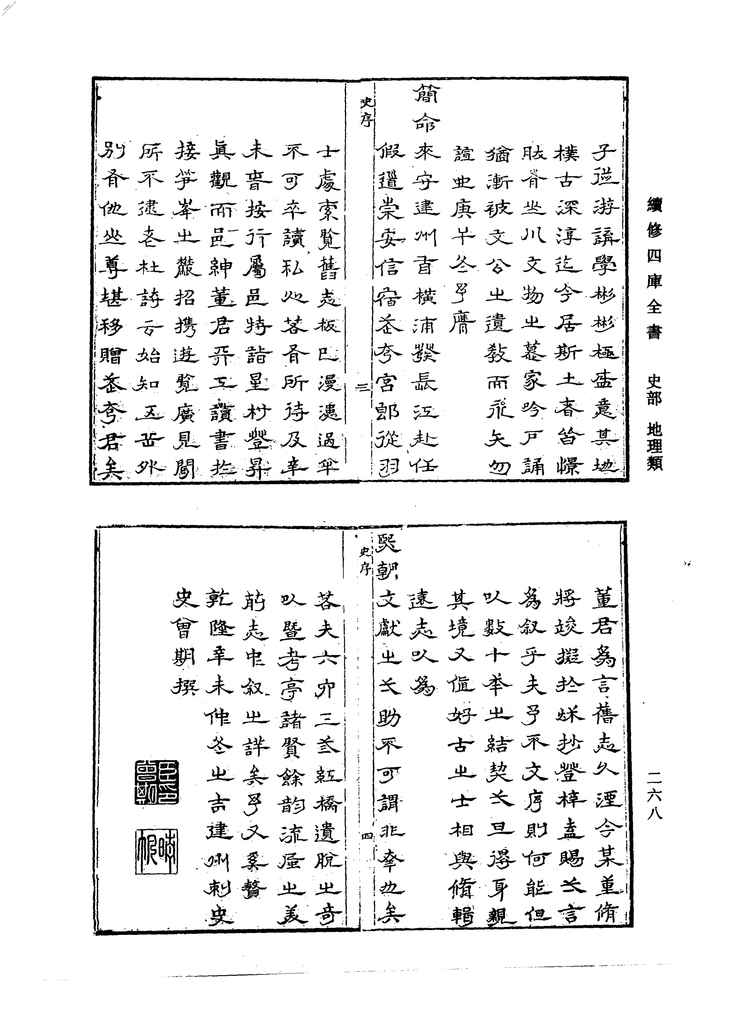 續修四庫全書　史部　地理類
二六八
子從游講學彬彬極盛意其地
樸古深淳迄今居斯土者皆憬
肢脊坐川文物之墓家吟戶誦
猶漸被文公之遺教而飛矢勿
諠也庚午冬予膺
簡命
來守建州首橫浦發長江赴任
假道崇安信宿茶夸宮郎從羽
史序
三
士處索覽舊志板已漫漶過半
不可卒讀私心茖有所待及辛
未春按行屬邑特詣星村登昇
真觀而邑紳董君平工讀書於
接筍峯之巖招携遊覽廣見聞
所不逮老杜詩云始知五岳外
別有他山尊堪移贈茶夸君矣
董君為言舊志久湮今某重脩
將竣擬於秋抄登梓盍賜之言
為叙乎夫予不文序則何能但
以數十年之結契之且得身親
其境又值好古之士相與脩輯
遠志以為
熙朝
文獻之之助不可謂非幸也矣
史序
四
若夫六六三三紅橋遺脫之奇
以暨考亭諸賢餘韵流風之美
前志中叙之詳矣予又奚贅
乾隆辛未仲冬之吉建州刺史
史曾期撰
臣印曾期